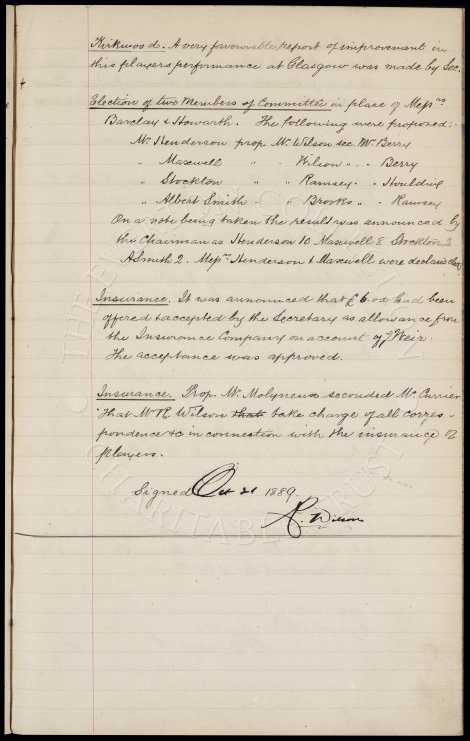 Kirkwood. A very favourable report of improvement in
this players performance at Glasgow was made by Sec.
Election of two Members of Committee in place of Messrs
Barclay & Howarth. The following were proposed:-
Mr Henderson prop Mr Wilson sec. Mr Berry
" Maxwell " " Wilson " " Berry
" Stockton " " Ramsey " " Houlding
" Albert Smith " " Brooks " " Ramsey
On a vote being taken the result was announced by
the Chairman as Henderson 10 Maxwell 8 Stockton 3
A Smith 2. Messrs Henderson & Maxwell were declared elected
Insurance. It was announced that £6.0.0 had been
offered & accepted by the Secretary as allowance from
the Insurance Company on account of J Weir.
The acceptance was approved.
Insurance. Prop. Mr Molyneux seconded Mr Currier
"That Mr R Wilson that take charge of all corres-
pondence &c in connection with the insurance of
players.
Signed Oct 21 1889.
R. Wilson
THE EVERTON COLLECTION
CHARITABLE TRUST